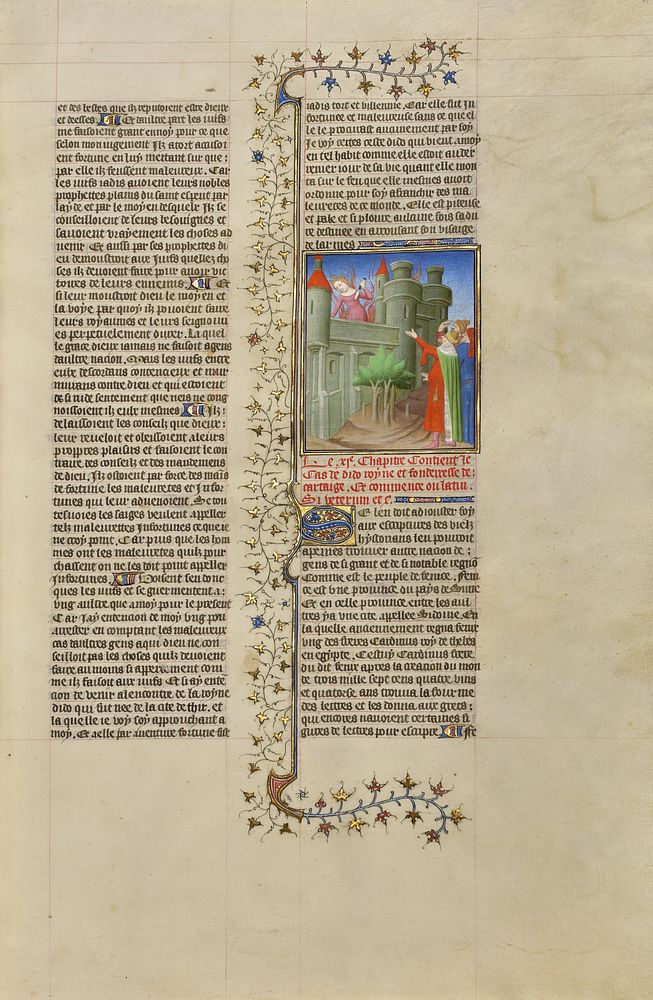 et des bestes que ilz reputoient estre dieux
et deesses. Et daultre part les iuifs
me faisoient grant ennoy pour ce que
selon mon iugement Ilz a tort accusoi
ent fortune en luy mettant sur que:
par elle ilz feussent maleureux. Car
les iuifs iadis auoient leurs nobles
prophettes plains du saint esperit par
layde et par le moyen desquelz ilz se
conseilloient de leurs besoingnes et
sauoient vrayement les choses ad
uenir Et aussi par ses prophettes di
eu demoustroit aux Juifs quelles cho
ses ilz deuoient faire pour auoir vic
toires de leurs ennemis. Et
si leur moustroit dieu le moyen et
la voye par quoy ilz pouoient faire
leurs royaumes et leurs seignouri
es perpetuelment durer. La quel
le grace dieux iamais ne faisoit a gens
daultre nacion. Mais les iuifs entre
eulx descordans contencieux et mur
murans contre dieu et qui estoient
de si rude sentement que neis ne cong
noissoient ilz eulx mesmes Ilz:
delaissoient les conseilz que dieux:
leur reueloit et obeissoient a leurs
propptes plaisirs et faisoient le con
traire des conseilz et des mandemens
de dieu. Ilz ostoient par force des mais
de fortune les maleuretes et Infor
tunes qui leur aduenoient. Se tou
tesuoies les saiges veulent appeller
telz maleurettes Infortunes ce que ie
ne croy point. Car puis que les hom
mes ont les maleuretes quilz pour
chassent on ne les doit point appeller
Infortunes. Voisent sen donc
ques les iuifs et se guermentent a:
vng aultre que a moy pour le present
Car Jay entencion de moy vng pou
arrester en comptant les maleureux
cas daultres gens a qui dieu ne con
seilloit pas les choses quilz deuoient
faire au moins si appertement com
me ilz faisoit aux iuifs. Et si ay enten
cion de venir alencontre de la royne
dido qui fut nee de la cite de thir. et
la quelle ie voy soy approuchant a
moy. Et a elle par auenture fortune fist
iadis tort et villenne. Car elle fut in
fortunee et maleureuse sans ce que el
le le procurast aucunement par soy
Je voy certes ceste dido qui vient a moy
en tel habit comme elle estoit au der
renier iour de sa vie quant elle mon
ta sur le feu que elle mesmes auoit
ordonne pour soy afranchir des ma
leuretes de ce monde. Elle est piteuse
et pale et si ploure aulcune fois sa du
re destinee en arrousant son visaige
de larmes
Le .xi.e Chapitre Contient le
Cas de dido royne et fonderesse de:
cartaige. Et commence ou latin.
Si veterum etc.
Se len doit adiouster foy
aux escriptures des vielz
hystorians len pourroit
apeines trouuer autre nacion de:
gens si grant et de si notable regno
Comme est le peuple de fenice. Feni
ce est vne prouince du pays de Surie
Et en celle prouince entre les aul
tres ya vne cite appellee Sidoine. En
la quelle anciennement regna fenix
vng des freres Cadinus roy de thebes
en egypte. Cestuy Cadinus frere
du dit fenix apres la creacion du mon
de trois mille sept cens quatre vins
et quatorse. ans trouua la fourme
des lettres et les donna aux grecs:
qui encores nauoient certaines fi
gures de lettres pour escripre Fe